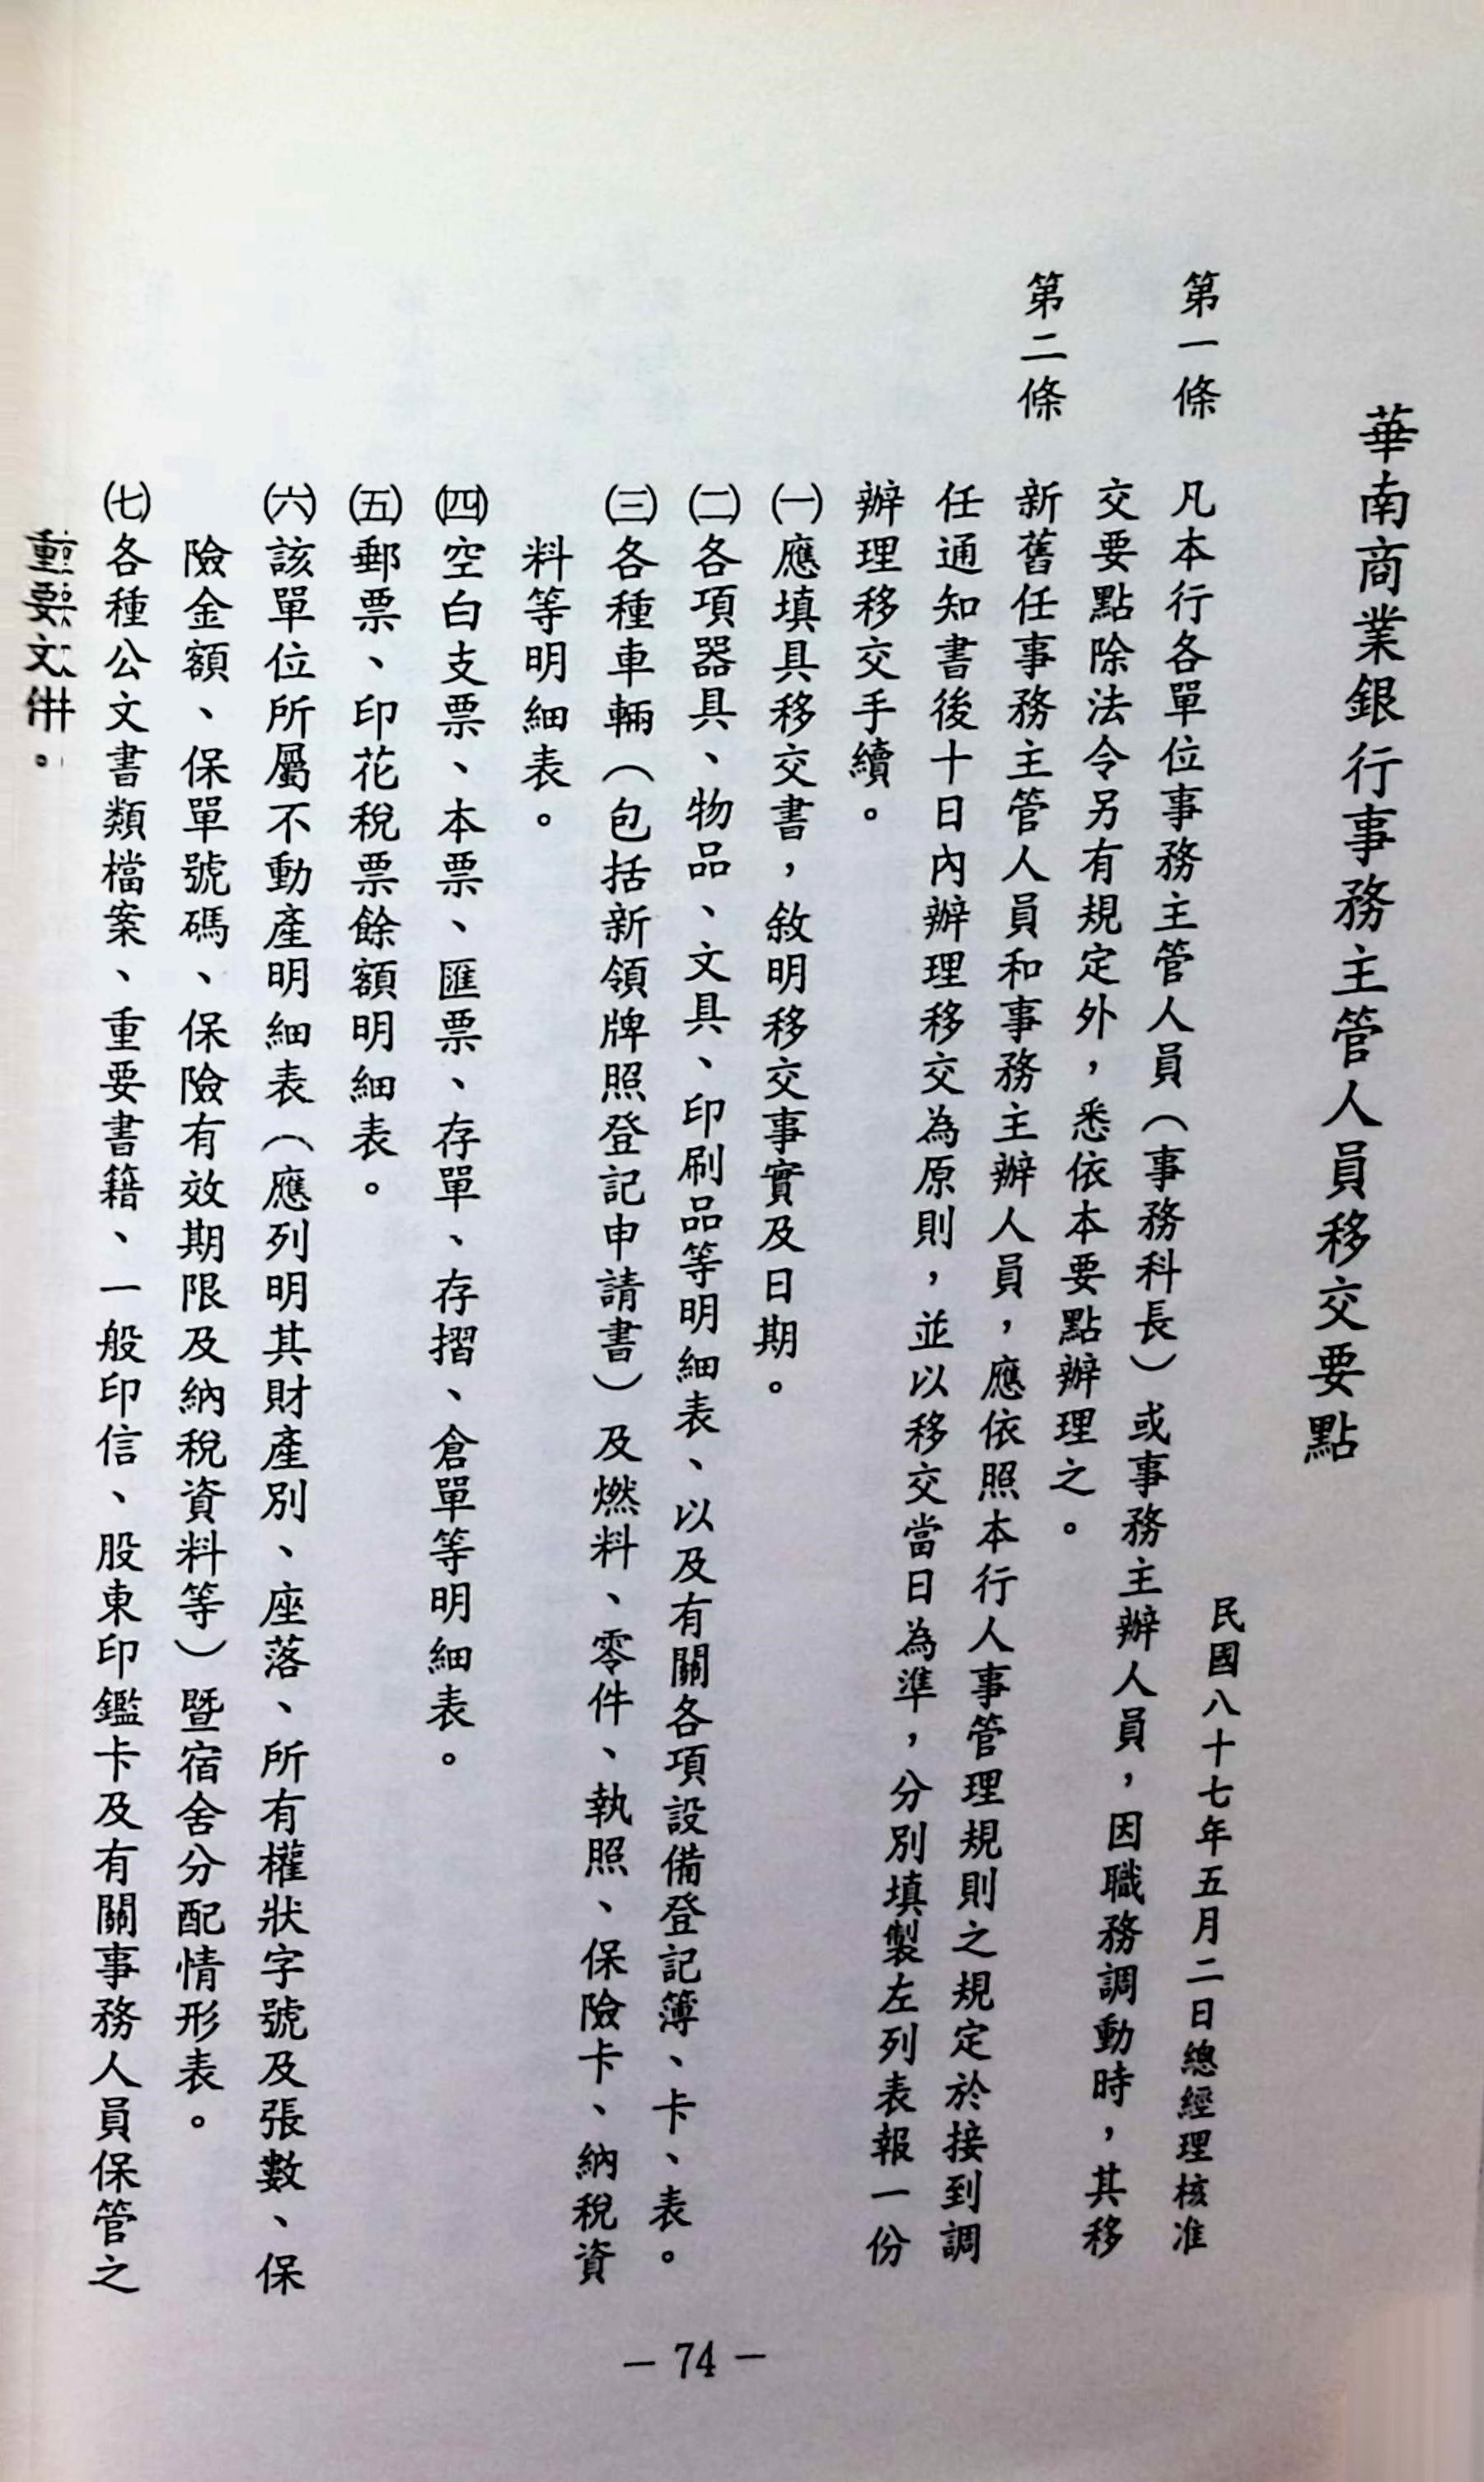 華南商業銀行事務主管人員移交要點
民國八十七年五月二日總經理核准
第一條　凡本行各單位事務主管人員（事務科長）或事務主辦人員，因職務調動時，其移
交要點除法令另有規定外，悉依本要點辦理之。
第二條　新舊任事務主管人員和事務主辦人員，應依照本行人事管理規則之規定於接到調
任通知書後十日內辦理移交為原則，並以移交當日為準，分別填製左列表報一份
辦理移交手續。
㈠應填具移交書，敘明移交事實及日期。
㈡各項器具、物品、文具、印刷品等明細表、以及有關各項設備登記簿、卡、表。
㈢各種車輛（包括新領牌照登記申請書）及燃料、零件、執照、保險卡、納稅資
料等明細表。
㈣空白支票、本票、匯票、存單、存摺、倉單等明細表。
㈤郵票、印花稅票餘額明細表。
㈥該單位所屬不動產明細表（應列明其財產別、座落、所有權狀字號及張數、保
險金額、保單號碼、保險有效期限及納稅資料等）暨宿舍分配情形表。
㈦各種公文書類檔案、重要書籍、一般印信、股東印鑑卡及有關事務人員保管之
重要文件。
－74－